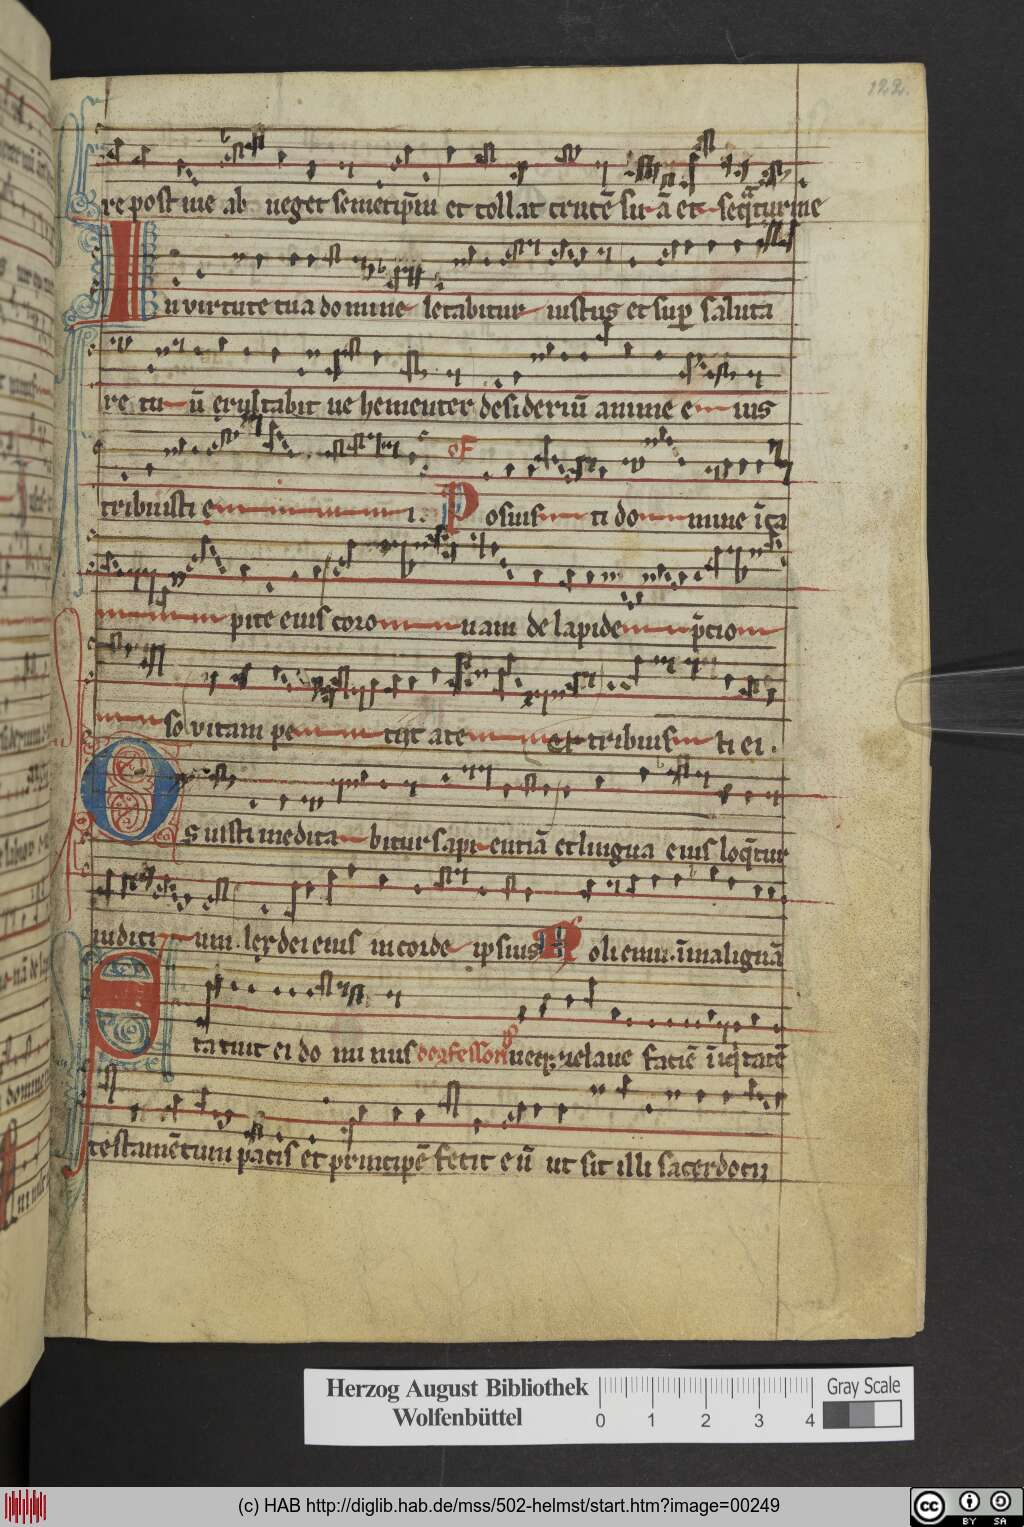 122.
re post me ab neget semetip̄m et tollat crucē su ā et seq̄tur me
In virtute tua domine letabitur iustus et sup saluta
re tu ū exultabit ve hementer desideriū anime e ius
tribuisti e i. of Posuis ti do mine ī ca
pite eius coro nam de lapide p̄cio
so vitam pe tiit a te et tribuis ti ei.
Os iusti medita bitur sapi entiā et lingua eius loq̄tur
iudici um. lex dei eius in corde ipsius Noli emu. ī malignā
Statuit ei do mi nus neq; zelave faciē īiq̄tatē
testamētum pacis et principē fecit eū ut sit illi sacerdocii
Herzog August Bibliothek
Wolfenbüttel
0 1 2 3 4
Gray Scale
(c) HAB http://diglib.hab.de/mss/502-helmst/start.htm?image=00249
cc BY SA